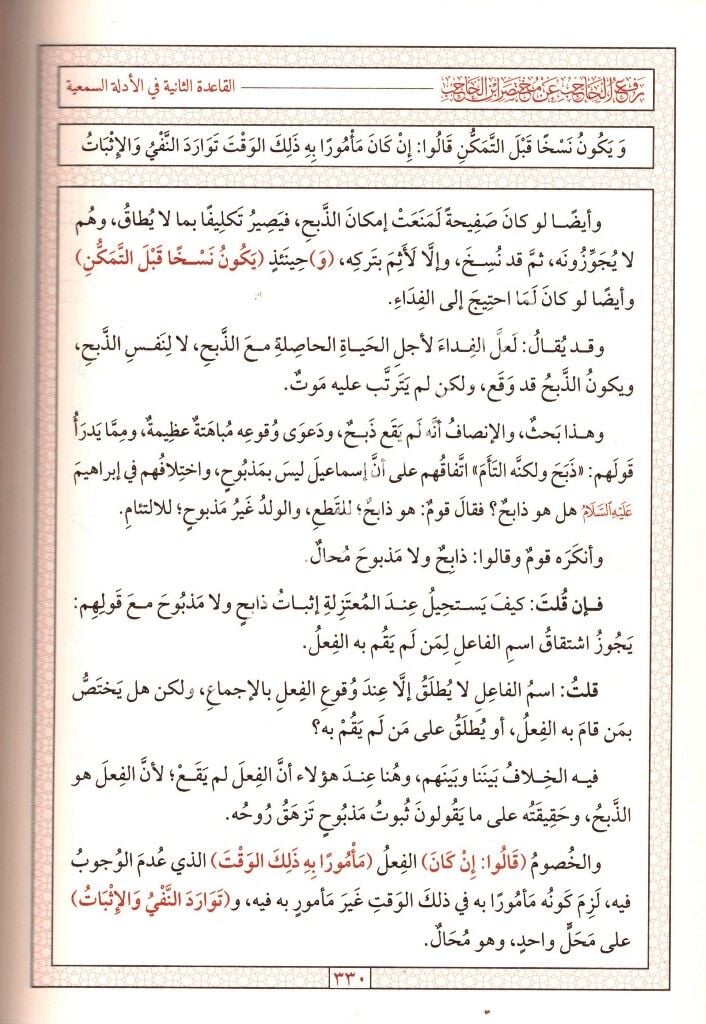 رَفْعُ الحَاجِبِ عَنْ مُخْتَصَرِ ابْنِ الحَاجِبِ
القاعدة الثانية في الأدلة السمعية
وَيَكُونُ نَسْخًا قَبْلَ التَّمَكُّنِ قَالُوا: إِنْ كَانَ مَأْمُورًا بِهِ ذَلِكَ الوَقْتَ تَوَارَدَ النَّفْيُ وَالإِثْبَاتُ
وأيضًا لو كانَ صَفِيحةً لَمَنَعَتْ إمكانَ الذَّبحِ، فيَصِيرُ تَكلِيفًا بما لا يُطاقُ، وهُم
لا يُجَوِّزُونَه، ثمَّ قد نُسِخَ، وإلَّا لَأَثِمَ بتَركِه، (وَ)حِينَئذٍ (يَكُونُ نَسْخًا قَبْلَ التَّمَكُّنِ)
وأيضًا لو كانَ لَمَا احتِيجَ إلى الفِدَاءِ.
وقد يُقالُ: لَعلَّ الفِداءَ لأجلِ الحَياةِ الحاصلةِ معَ الذَّبحِ، لا لِنَفسِ الذَّبحِ،
ويكونُ الذَّبحُ قد وَقَع، ولكن لم يَتَرتَّب عليه مَوتٌ.
وهذا بَحثٌ، والإنصافُ أنَّه لَم يَقَع ذَبحٌ، ودَعوَى وُقوعِه مُباهَتةٌ عظيمةٌ، ومِمَّا يَدرَأُ
قَولَهم: «ذَبَحَ ولكنَّه التَأَمَ» اتَّفاقُهم على أنَّ إسماعيلَ ليسَ بمَذبُوحٍ، واختِلافُهم في إبراهيمَ
عَلَيْهِ السَّلَامُ هل هو ذابحٌ؟ فقالَ قومٌ: هو ذابحٌ؛ للقَطعِ، والولدُ غَيرُ مَذبوحٍ؛ للالتئامِ.
وأنكَرَه قومٌ وقالوا: ذابِحٌ ولا مَذبوحَ مُحالٌ.
فإن قُلتَ: كيفَ يَستحِيلُ عِندَ المُعتَزِلةِ إثباتُ ذابحٍ ولا مَذبُوحَ معَ قَولِهِم:
يَجُوزُ اشتقاقُ اسمِ الفاعلِ لِمَن لَم يَقُم به الفِعلُ.
قلتُ: اسمُ الفاعلِ لا يُطلَقُ إلَّا عِندَ وُقوعِ الفِعلِ بالإجماعِ، ولكن هل يَختَصُّ
بمَن قامَ به الفِعلُ، أو يُطلَقُ على مَن لَم يَقُمْ به؟
فيه الخِلافُ بَينَنا وبَينَهم، وهُنا عِندَ هؤلاء أنَّ الفِعلَ لم يَقَعْ؛ لأنَّ الفِعلَ هو
الذَّبحُ، وحَقِيقَتُه على ما يَقُولونَ ثُبوتُ مَذبُوحٍ تَزهَقُ رُوحُه.
والخُصومُ (قَالُوا: إِنْ كَانَ) الفِعلُ (مَأْمُورًا بِهِ ذَلِكَ الوَقْتَ) الذي عُدمَ الوُجوبُ
فيه، لَزِمَ كَونُه مَأمورًا به في ذلكَ الوَقتِ غَيرَ مَأمورٍ به فيه، و(تَوَارَدَ النَّفْيُ وَالإِثْبَاتُ)
على مَحَلٍّ واحدٍ، وهو مُحَالٌ.
٣٣٠